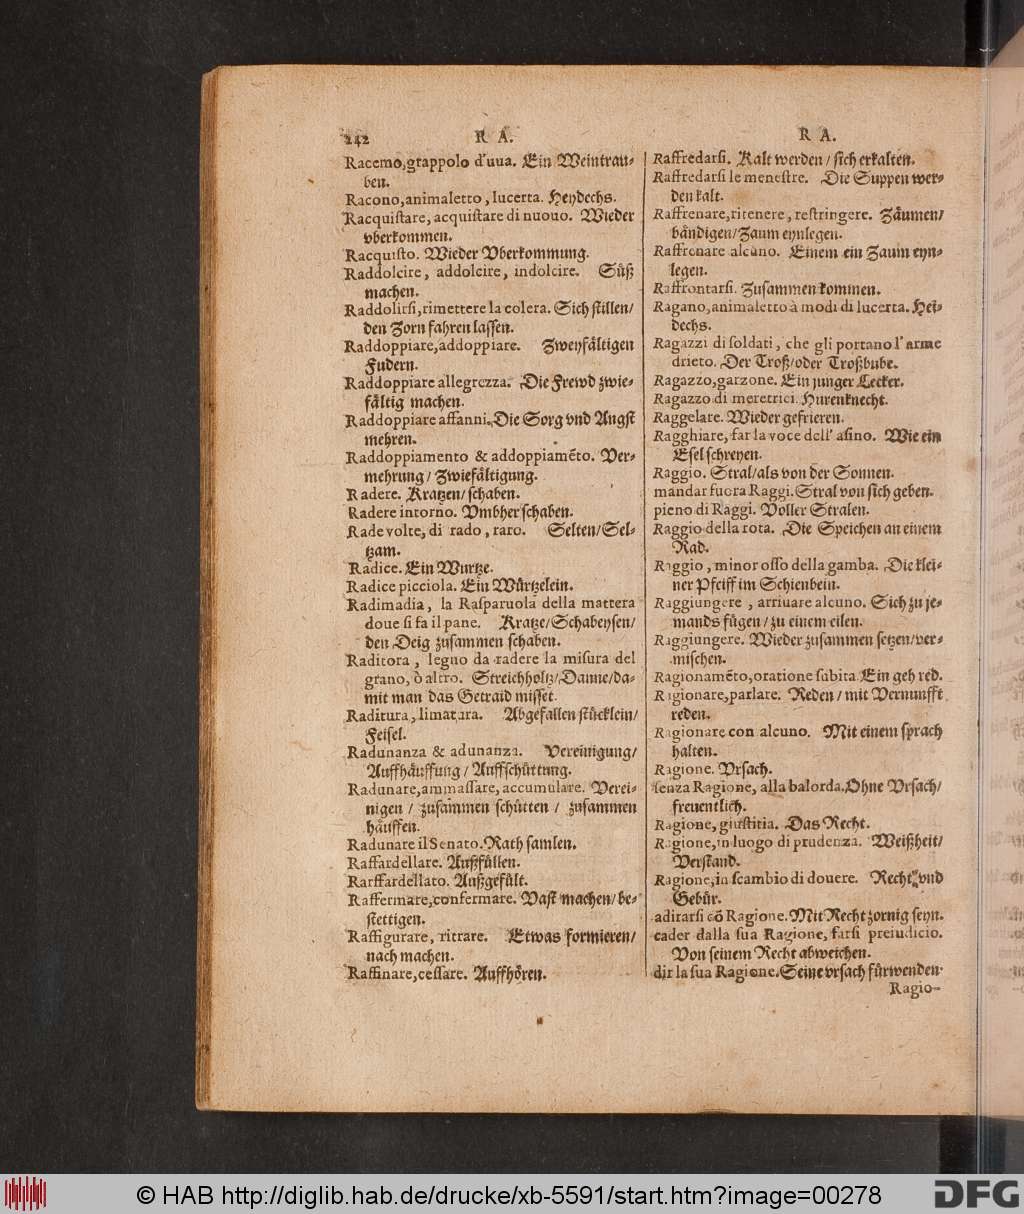 242 R A.
Racemo, grappolo d'uua. Ein Weintrau-
ben.
Racono, animaletto, lucerta. Heydechs.
Racquistare, acquistare di nuouo. Wieder
vberkommen.
Racquisto. Wieder Vberkommung.
Raddolcire, addolcire, indolcire. Süß
machen.
Raddolirsi, rimettere la colera. Sich stillen/
den Zorn fahren lassen.
Raddoppiare, addoppiare. Zweyfältigen
Fudern.
Raddoppiare allegrezza. Die Frewd zwie-
fältig machen.
Raddoppiare affanni. Die Sorg vnd Angst
mehren.
Raddoppiamento & addoppiamẽto. Ver-
mehrung/ Zwiefältigung.
Radere. Kratzen/ schaben.
Radere intorno. Vmbher schaben.
Rade volte, di rado, raro. Selten/ Sel-
tzam.
Radice. Ein Wurtze.
Radice picciola. Ein Würtzelein.
Radimadia, la Rasparuola della mattera
doue si fa il pane. Kratze/ Schabeysen/
den Deig zusammen schaben.
Raditora, legno da radere la misura del
grano, ò altro. Streichholtz/ Danne/ da-
mit man das Getraid misset.
Raditura, limatura. Abgefallen stücklein/
Feisel.
Radunanza & adunanza. Vereinigung/
Auffhäuffung/ Auffschüttung.
Radunare, ammassare, accumulare. Verei-
nigen/ zusammen schütten/ zusammen
häuffen.
Radunare il Senato. Rath samlen.
Raffardellare. Außfüllen.
Rarffardellato. Außgefült.
Raffermare, confermare. Vast machen/ be-
stettigen.
Raffigurare, ritrare. Etwas formieren/
nach machen.
Raffinare, cessare. Auffhören.
R A.
Raffredarsi. Kalt werden/ sich erkalten.
Raffredarsi le menestre. Die Suppen wer-
den kalt.
Raffrenare, ritenere, restringere. Zäumen/
bändigen/ Zaum eynlegen.
Raffrenare alcuno. Einem ein Zaum eyn-
legen.
Raffrontarsi. Zusammen kommen.
Ragano, animaletto à modi di lucerta. Hei-
dechs.
Ragazzi di soldati, che gli portano l'arme
drieto. Der Troß/ oder Troßbube.
Ragazzo, garzone. Ein junger Lecker.
Ragazzo di meretrici. Hurenknecht.
Raggelare. Wieder gefrieren.
Ragghiare, far la voce dell' asino. Wie ein
Esel schreyen.
Raggio. Stral/ als von der Sonnen.
mandar fuora Raggi. Stral von sich geben.
pieno di Raggi. Voller Stralen.
Raggio della rota. Die Speichen an einem
Rad.
Raggio, minor osso della gamba. Die klei-
ner Pfeiff im Schienbein.
Raggiungere, arriuare alcuno. Sich zu je-
mands fügen/ zu einem eilen.
Raggiungere. Wieder zusammen setzen/ ver-
mischen.
Ragionamẽto, oratione subita. Ein geh red.
Ragionare, parlare. Reden/ mit Vernunfft
reden.
Ragionare con alcuno. Mit einem sprach
halten.
Ragione. Vrsach.
senza Ragione, alla balorda. Ohne Vrsach/
freuentlich.
Ragione, giustitia. Das Recht.
Ragione, in luogo di prudenza. Weißheit/
Verstand.
Ragione, in scambio di douere. Recht vnd
Gebür.
adirarsi cõ Ragione. Mit Recht zornig seyn.
cader dalla sua Ragione, farsi preiudicio.
Von seinem Recht abweichen.
dir la sua Ragione. Seine vrsach fürwenden.
Ragio-
© HAB http://diglib.hab.de/drucke/xb-5591/start.htm?image=00278
DFG